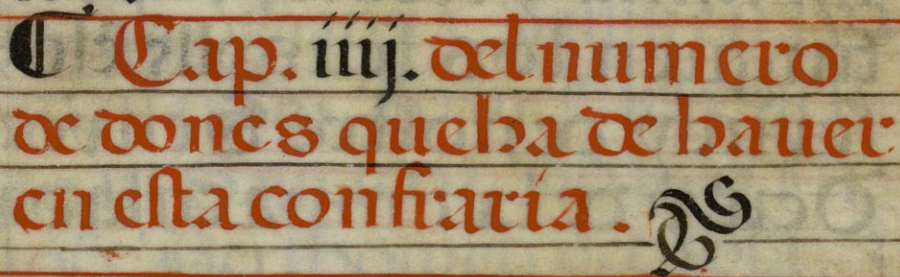 ¶ Cap. iiij. del numero
de dones que ha de hauer
en esta confraria.